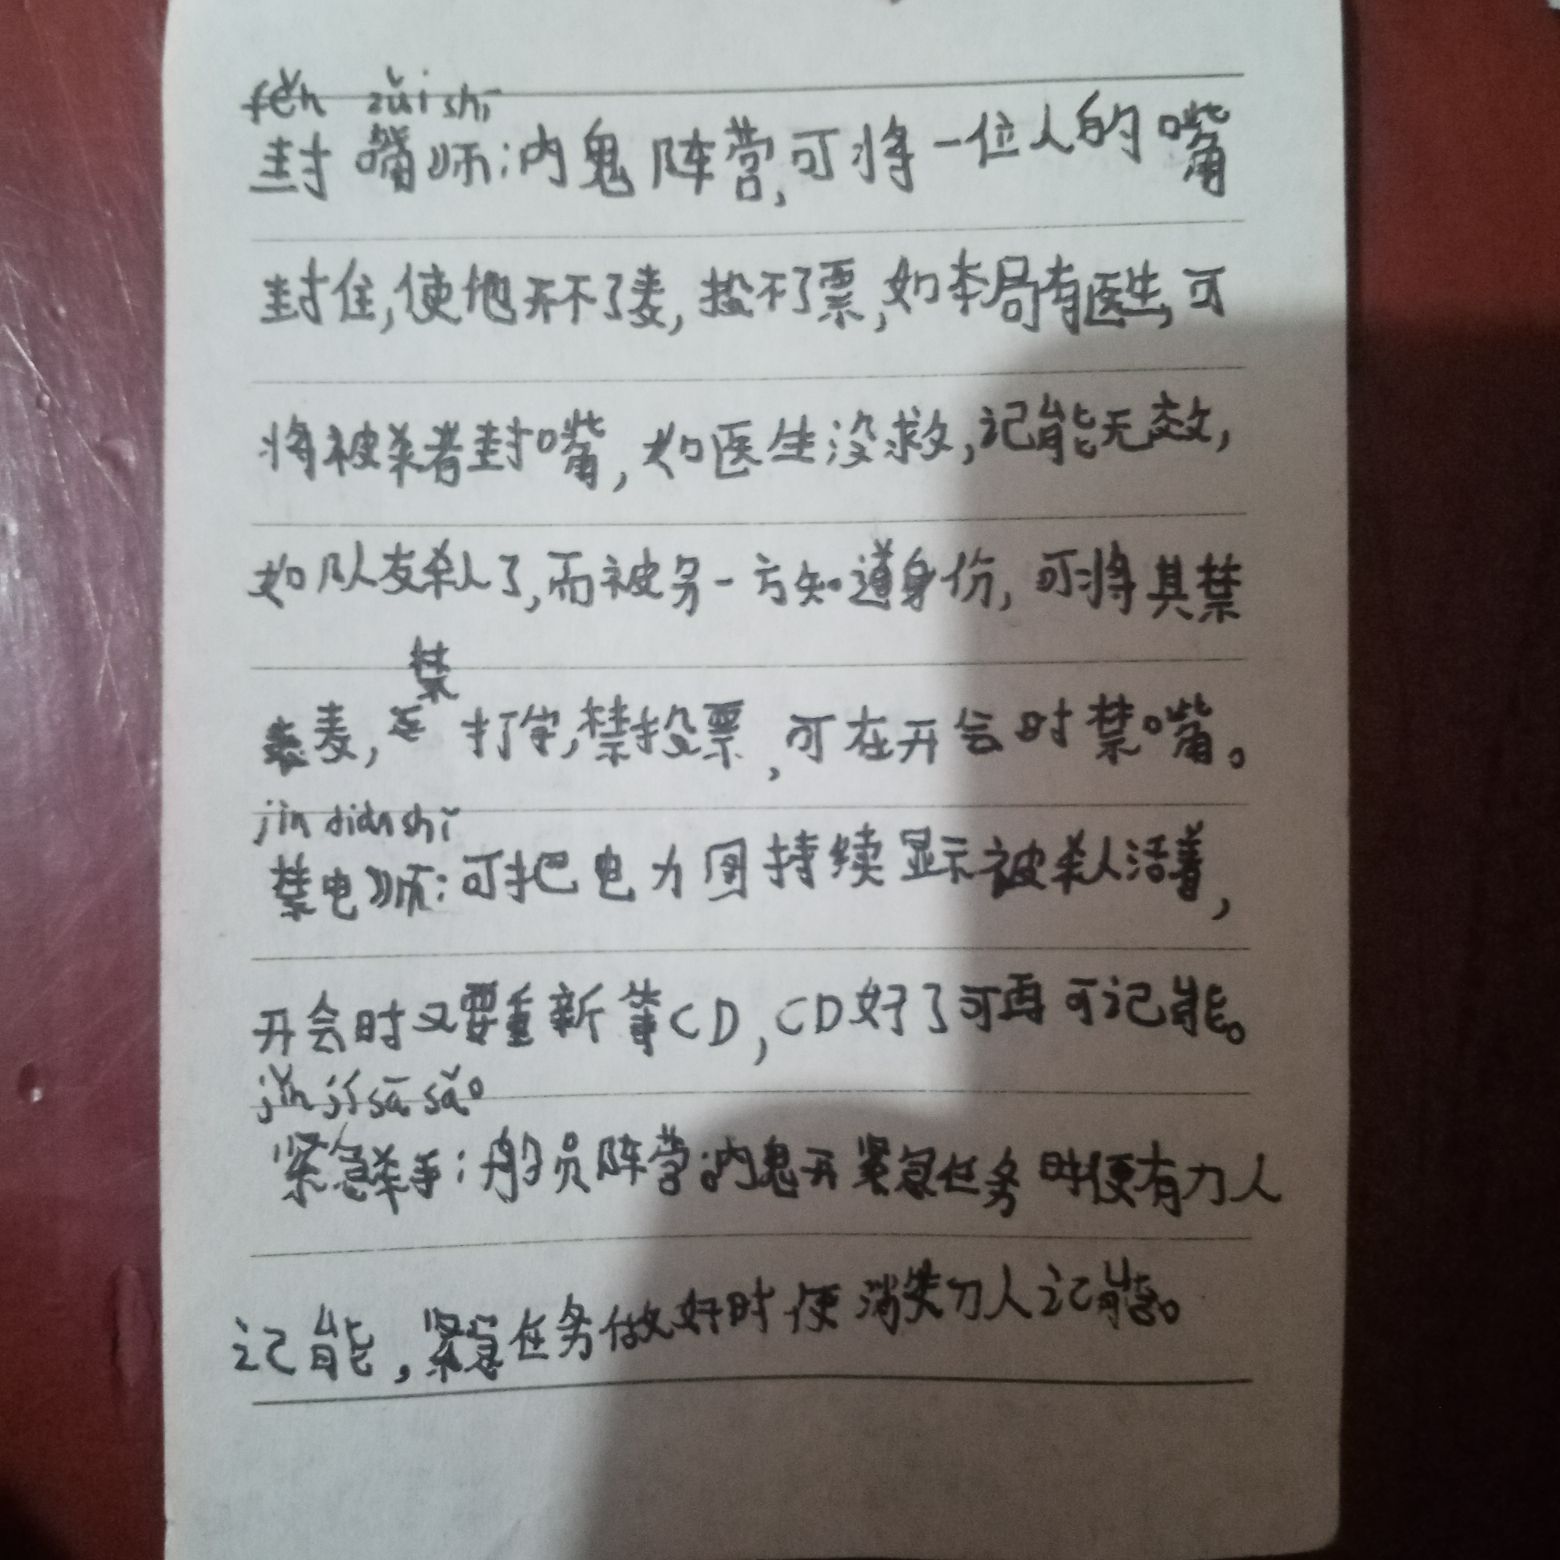 fěn zuǐ shī
封嘴师:内鬼阵营,可将一位人的嘴
封住,使他开不了麦,投不了票,如本局有医生,可
将被杀者封嘴,如医生没救,记能无效,
如队友杀人了,而被另一方知道身份,可将其禁
禁
麦,打字,禁投票,可在开会时禁嘴。
jìn diàn shī
禁电师:可把电力图持续显示被杀人活着,
开会时又要重新等CD,CD好了可再可记能。
jǐn jí sā sǎo
紧急杀手:船员阵营,内鬼开紧急任务时便有刀人
记能,紧急任务做好时便消失刀人记能。